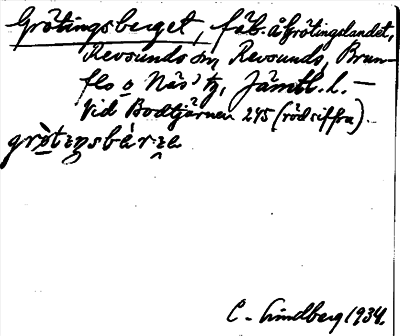 Grötingsberget, fäb. å Grötingslandet,
Revsunds sn, Revsunds, Brun-
flo o Näs' tg, Jämtl. l. —
Vid Bodtjärnen 245 (röd siffra).
grö̀tɛnsbárɛ
C. Lindberg 1934.